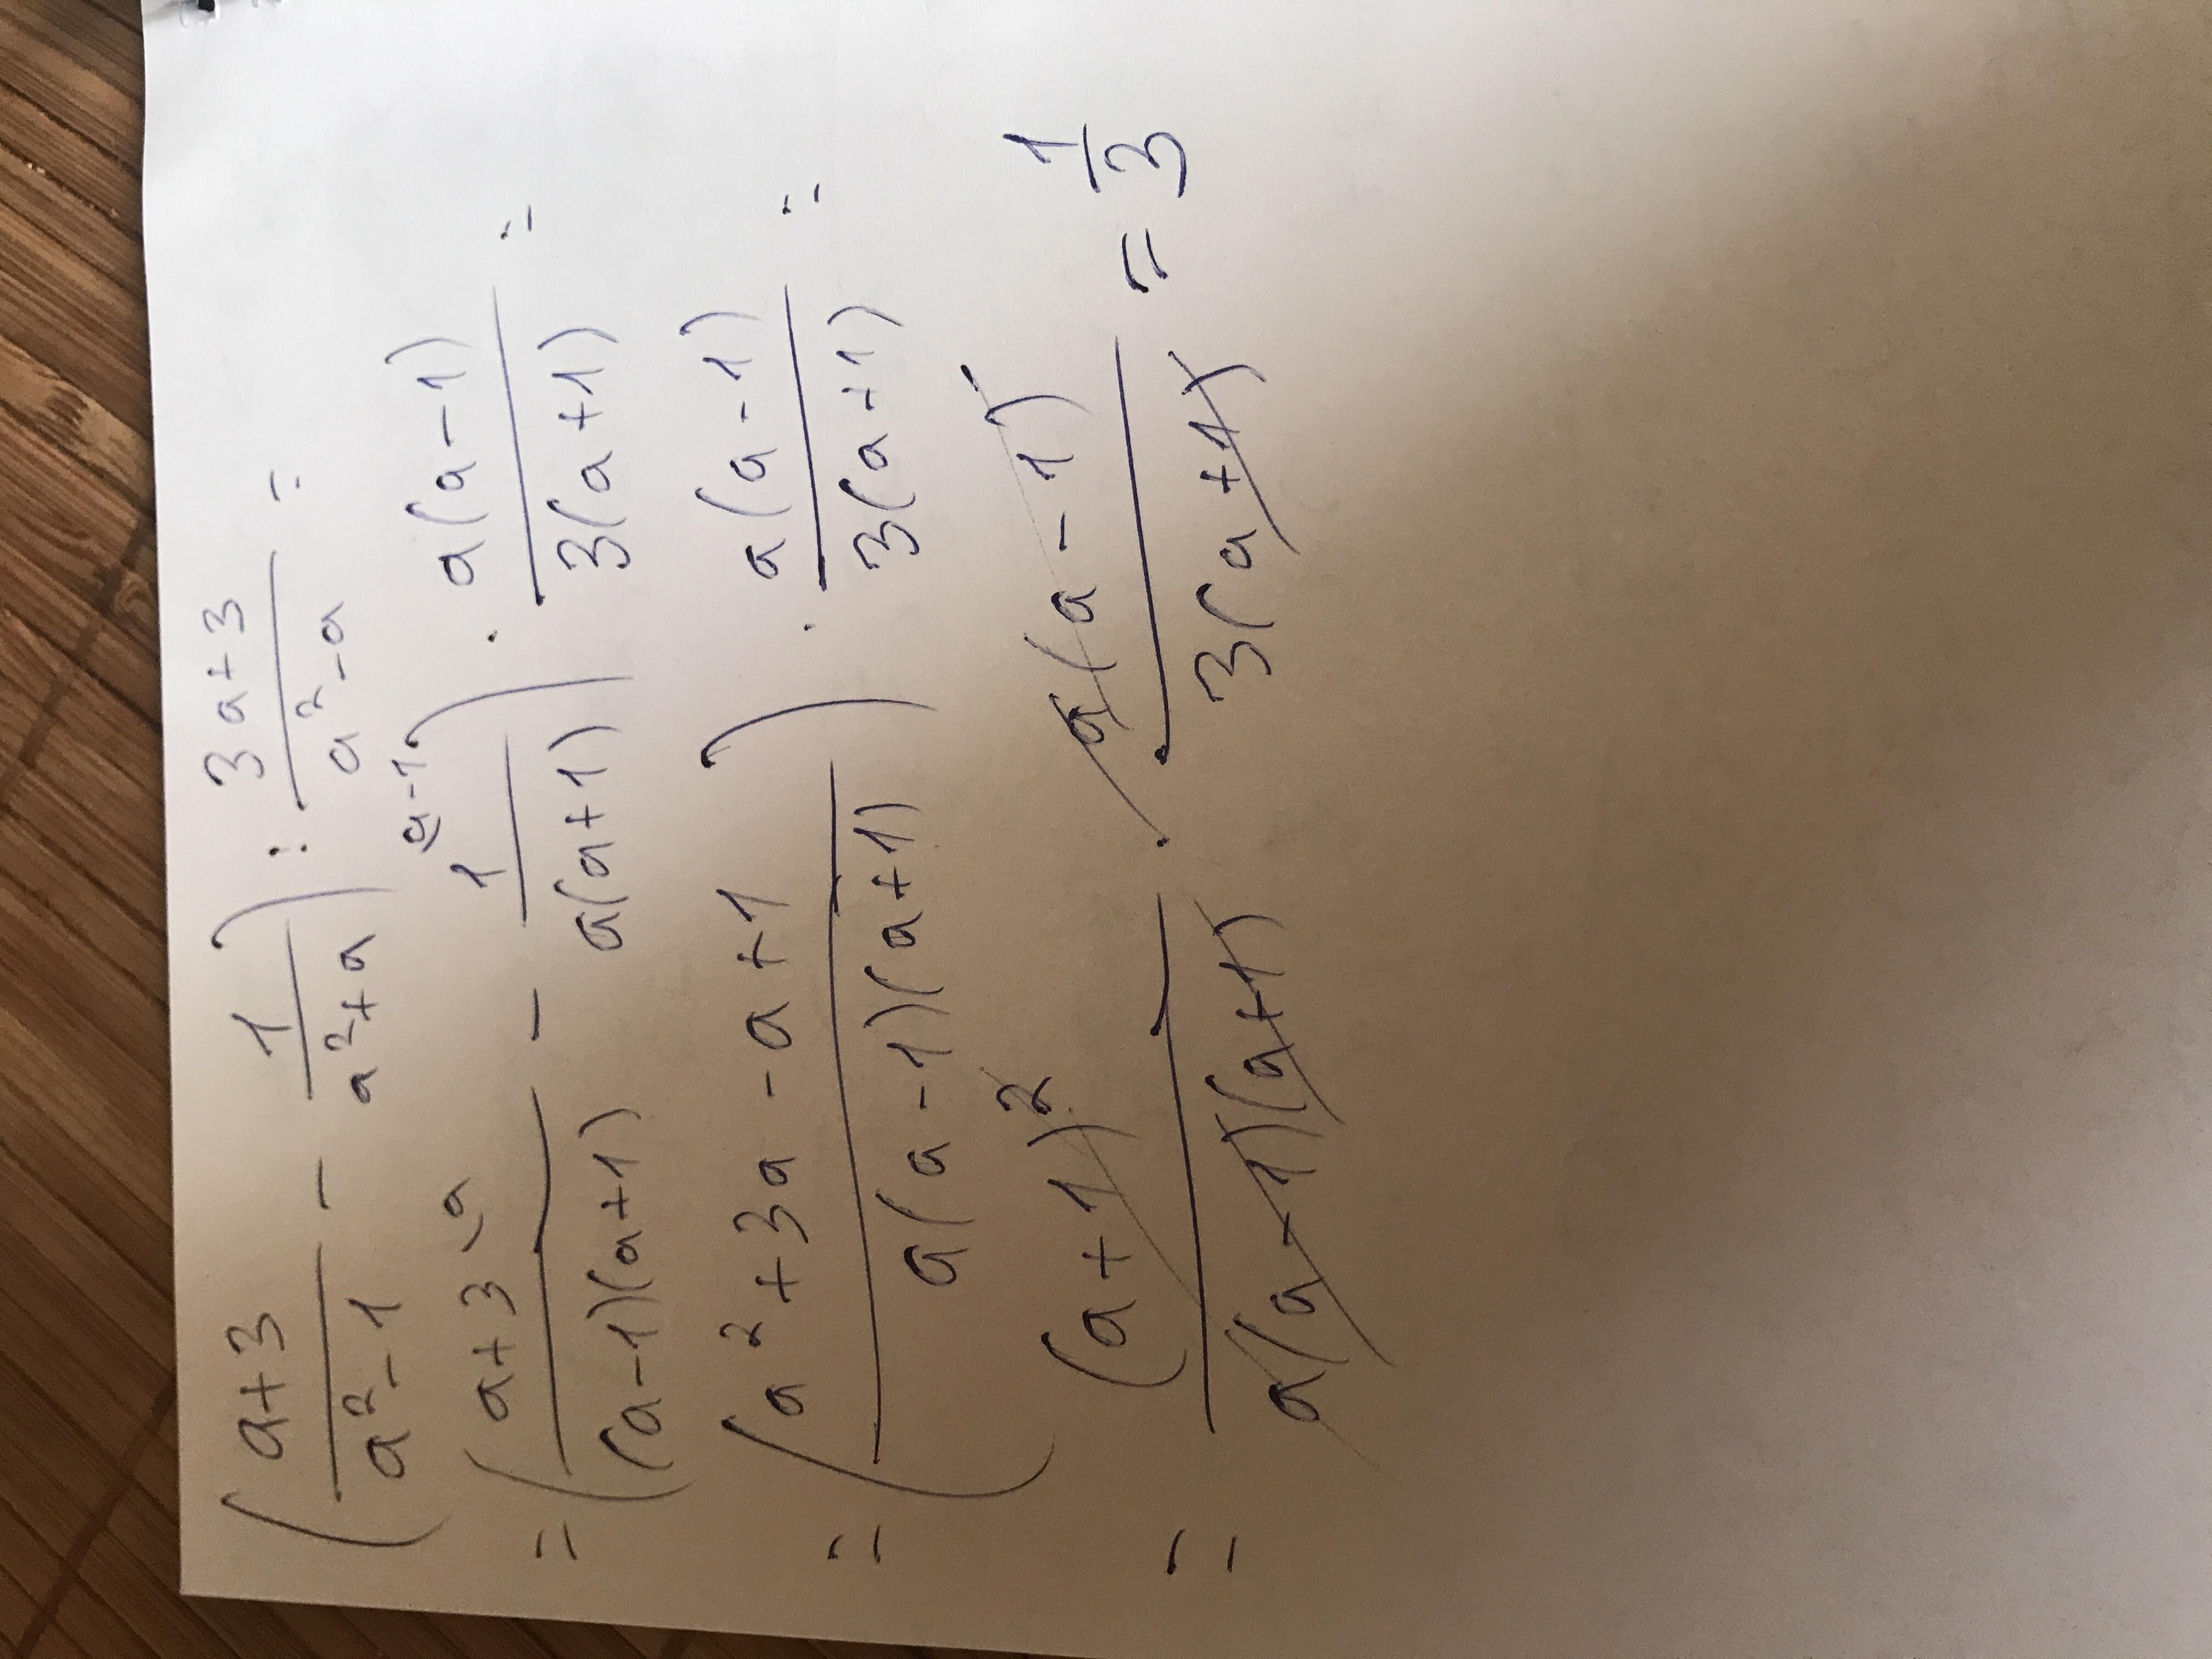 ( (a+3)/(a²-1) - 1/(a²+a) ) : (3a+3)/(a²-a) =
= ( (a+3)/((a-1)(a+1)) \a - 1/(a(a+1)) (a-1 ) · a(a-1)/(3(a+1)) =
= ( (a²+3a-a+1)/(a(a-1)(a+1)) ) · a(a-1)/(3(a+1)) =
= (a+1)²/(a(a-1)(a+1)) · a(a-1)/(3(a+1)) = 1/3